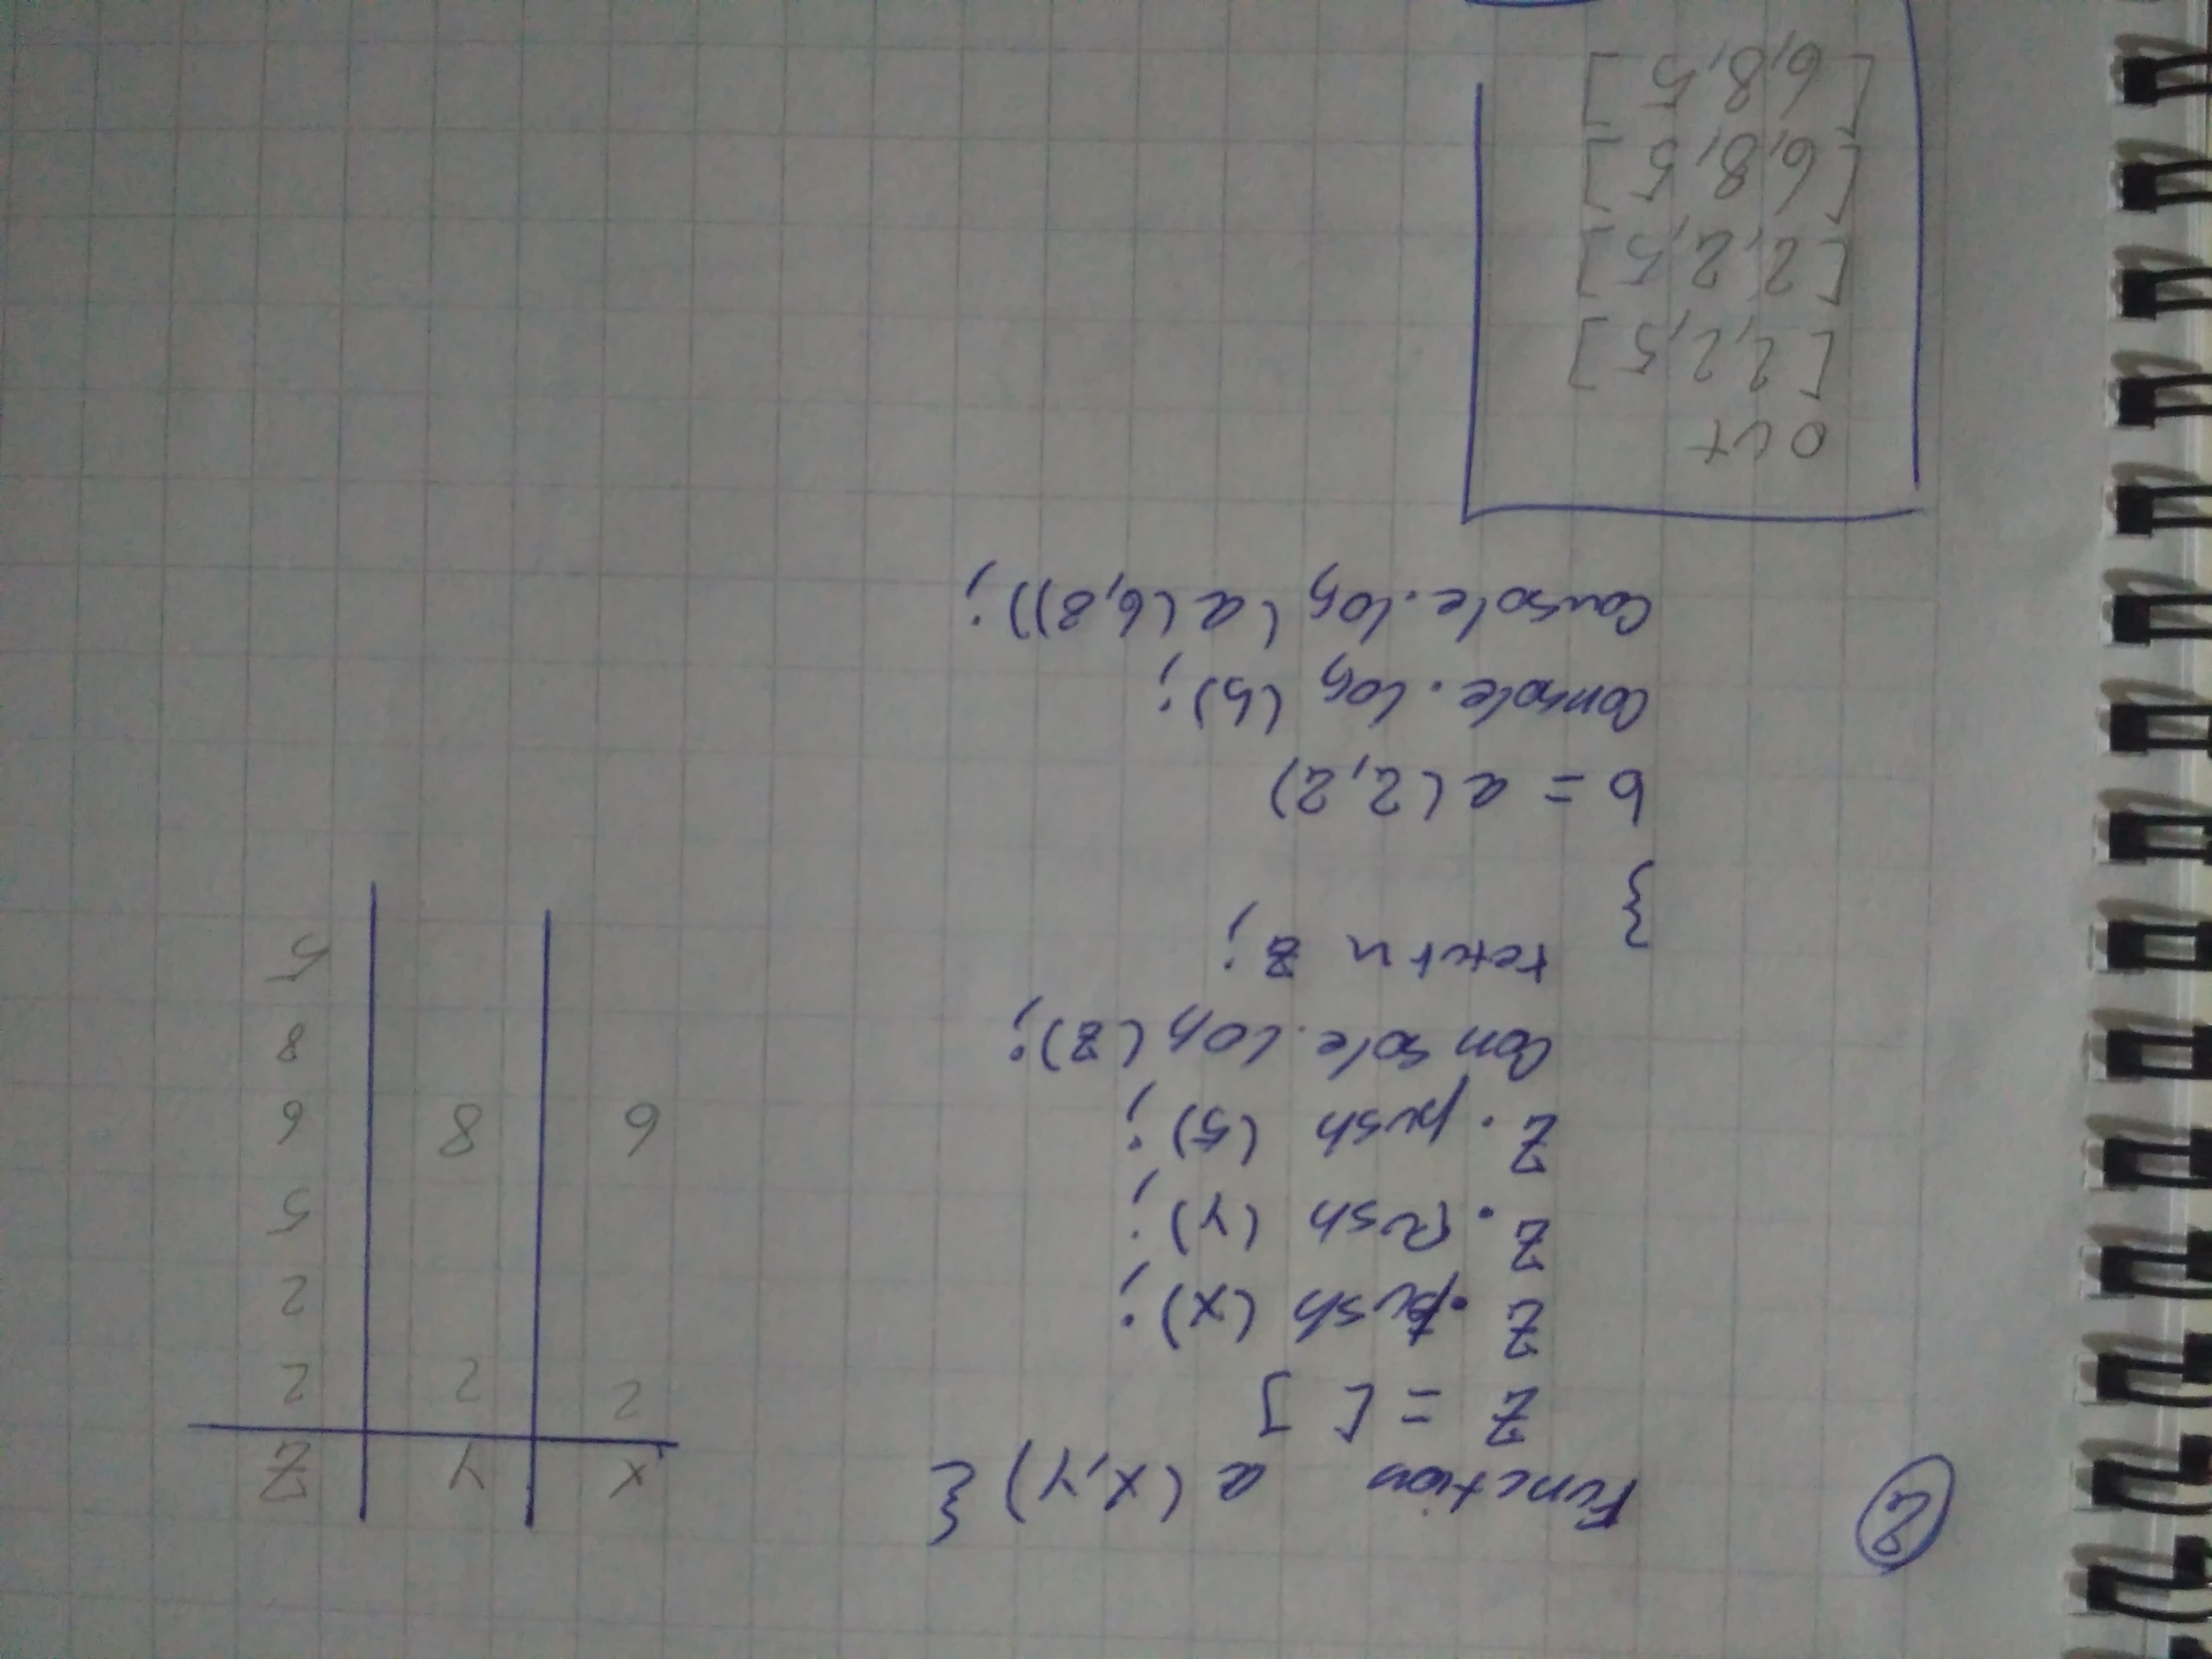 ②
Function a (x,y) {
z = [ ]
z.push (x);
z.Push (y);
z.push (5);
Console.log (z);
return z;
}
b = a (2,2)
Console.log (b);
Console.log (a(6,8));
out
[2,2,5]
[2,2,5]
[6,8,5]
[6,8,5]
x y z
2 2 2
2
5
6 8 6
8
5